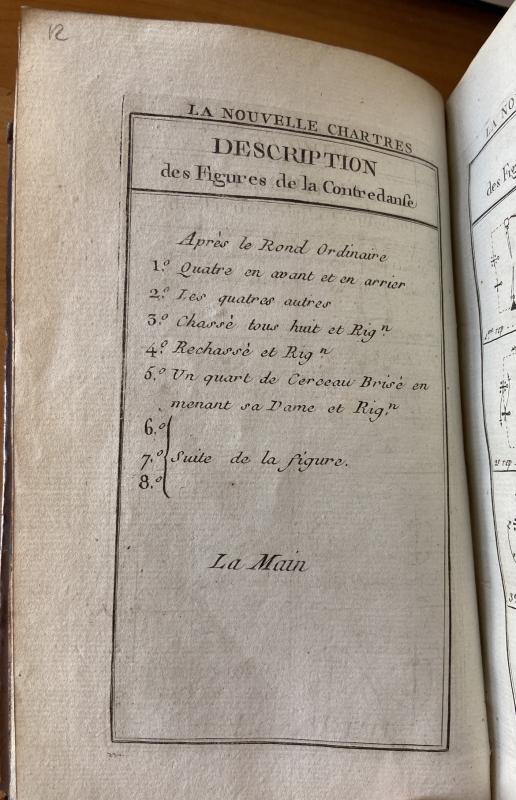 12
LA NOUVELLE CHARTRES
DESCRIPTION
des Figures de la Contredanse
Après le Rond Ordinaire
1.º Quatre en avant et en arrier
2.º Les quatres autres
3.º Chassé tous huit et Rig.n
4.º Rechassé et Rig n
5.º Un quart de Cerceau Brisé en
menant sa Dame et Rig.n
6.º
7.º Suite de la figure.
8.º
La Main
LA NO
des Fig
1ere rep
2e rep
3e